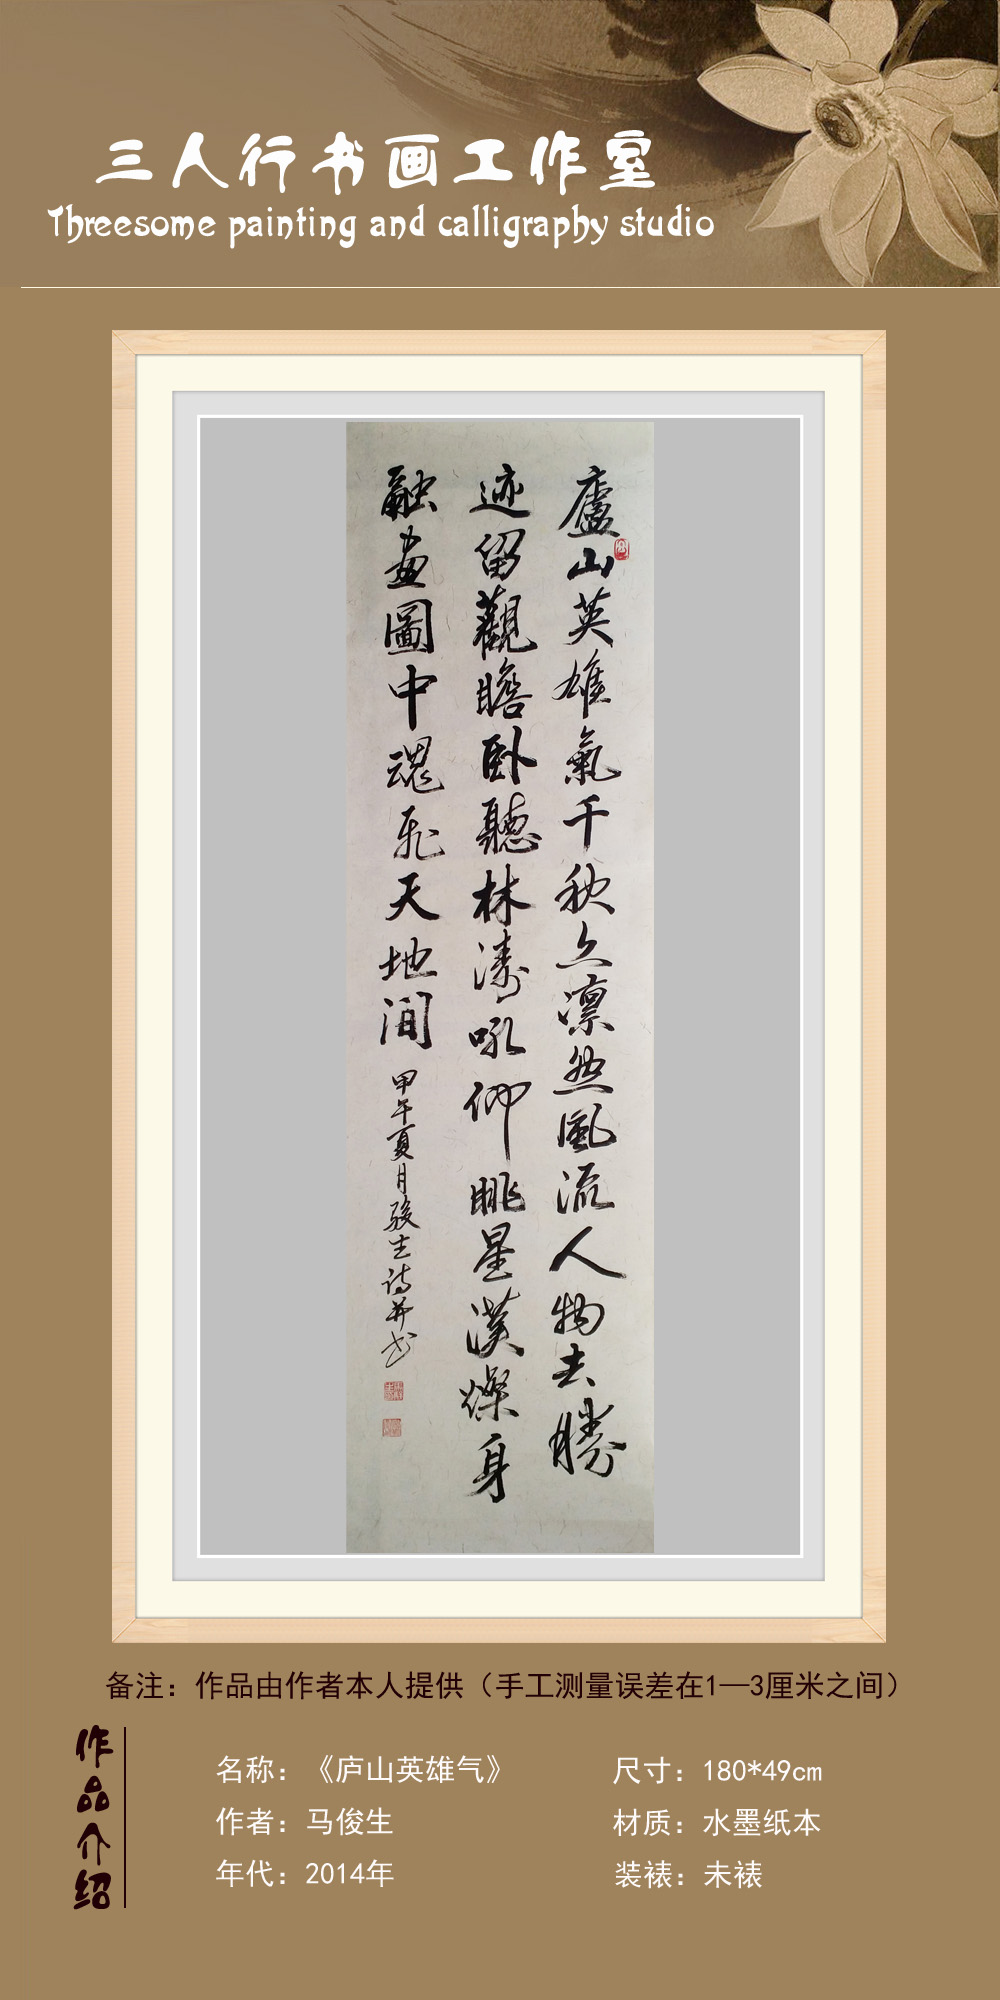 三人行书画工作室
Threesome painting and calligraphy studio
廬山英雄氣千秋上凛然風流人物去勝
迹留觀瞻卧聽林濤吼仰眺星漢燦身
融畫圖中魂飛天地間
甲午夏月骏生诗并书
备注：作品由作者本人提供（手工测量误差在1—3厘米之间）
作品介绍
名称：《庐山英雄气》
尺寸：180*49cm
作者：马俊生
材质：水墨纸本
年代：2014年
装裱：未裱